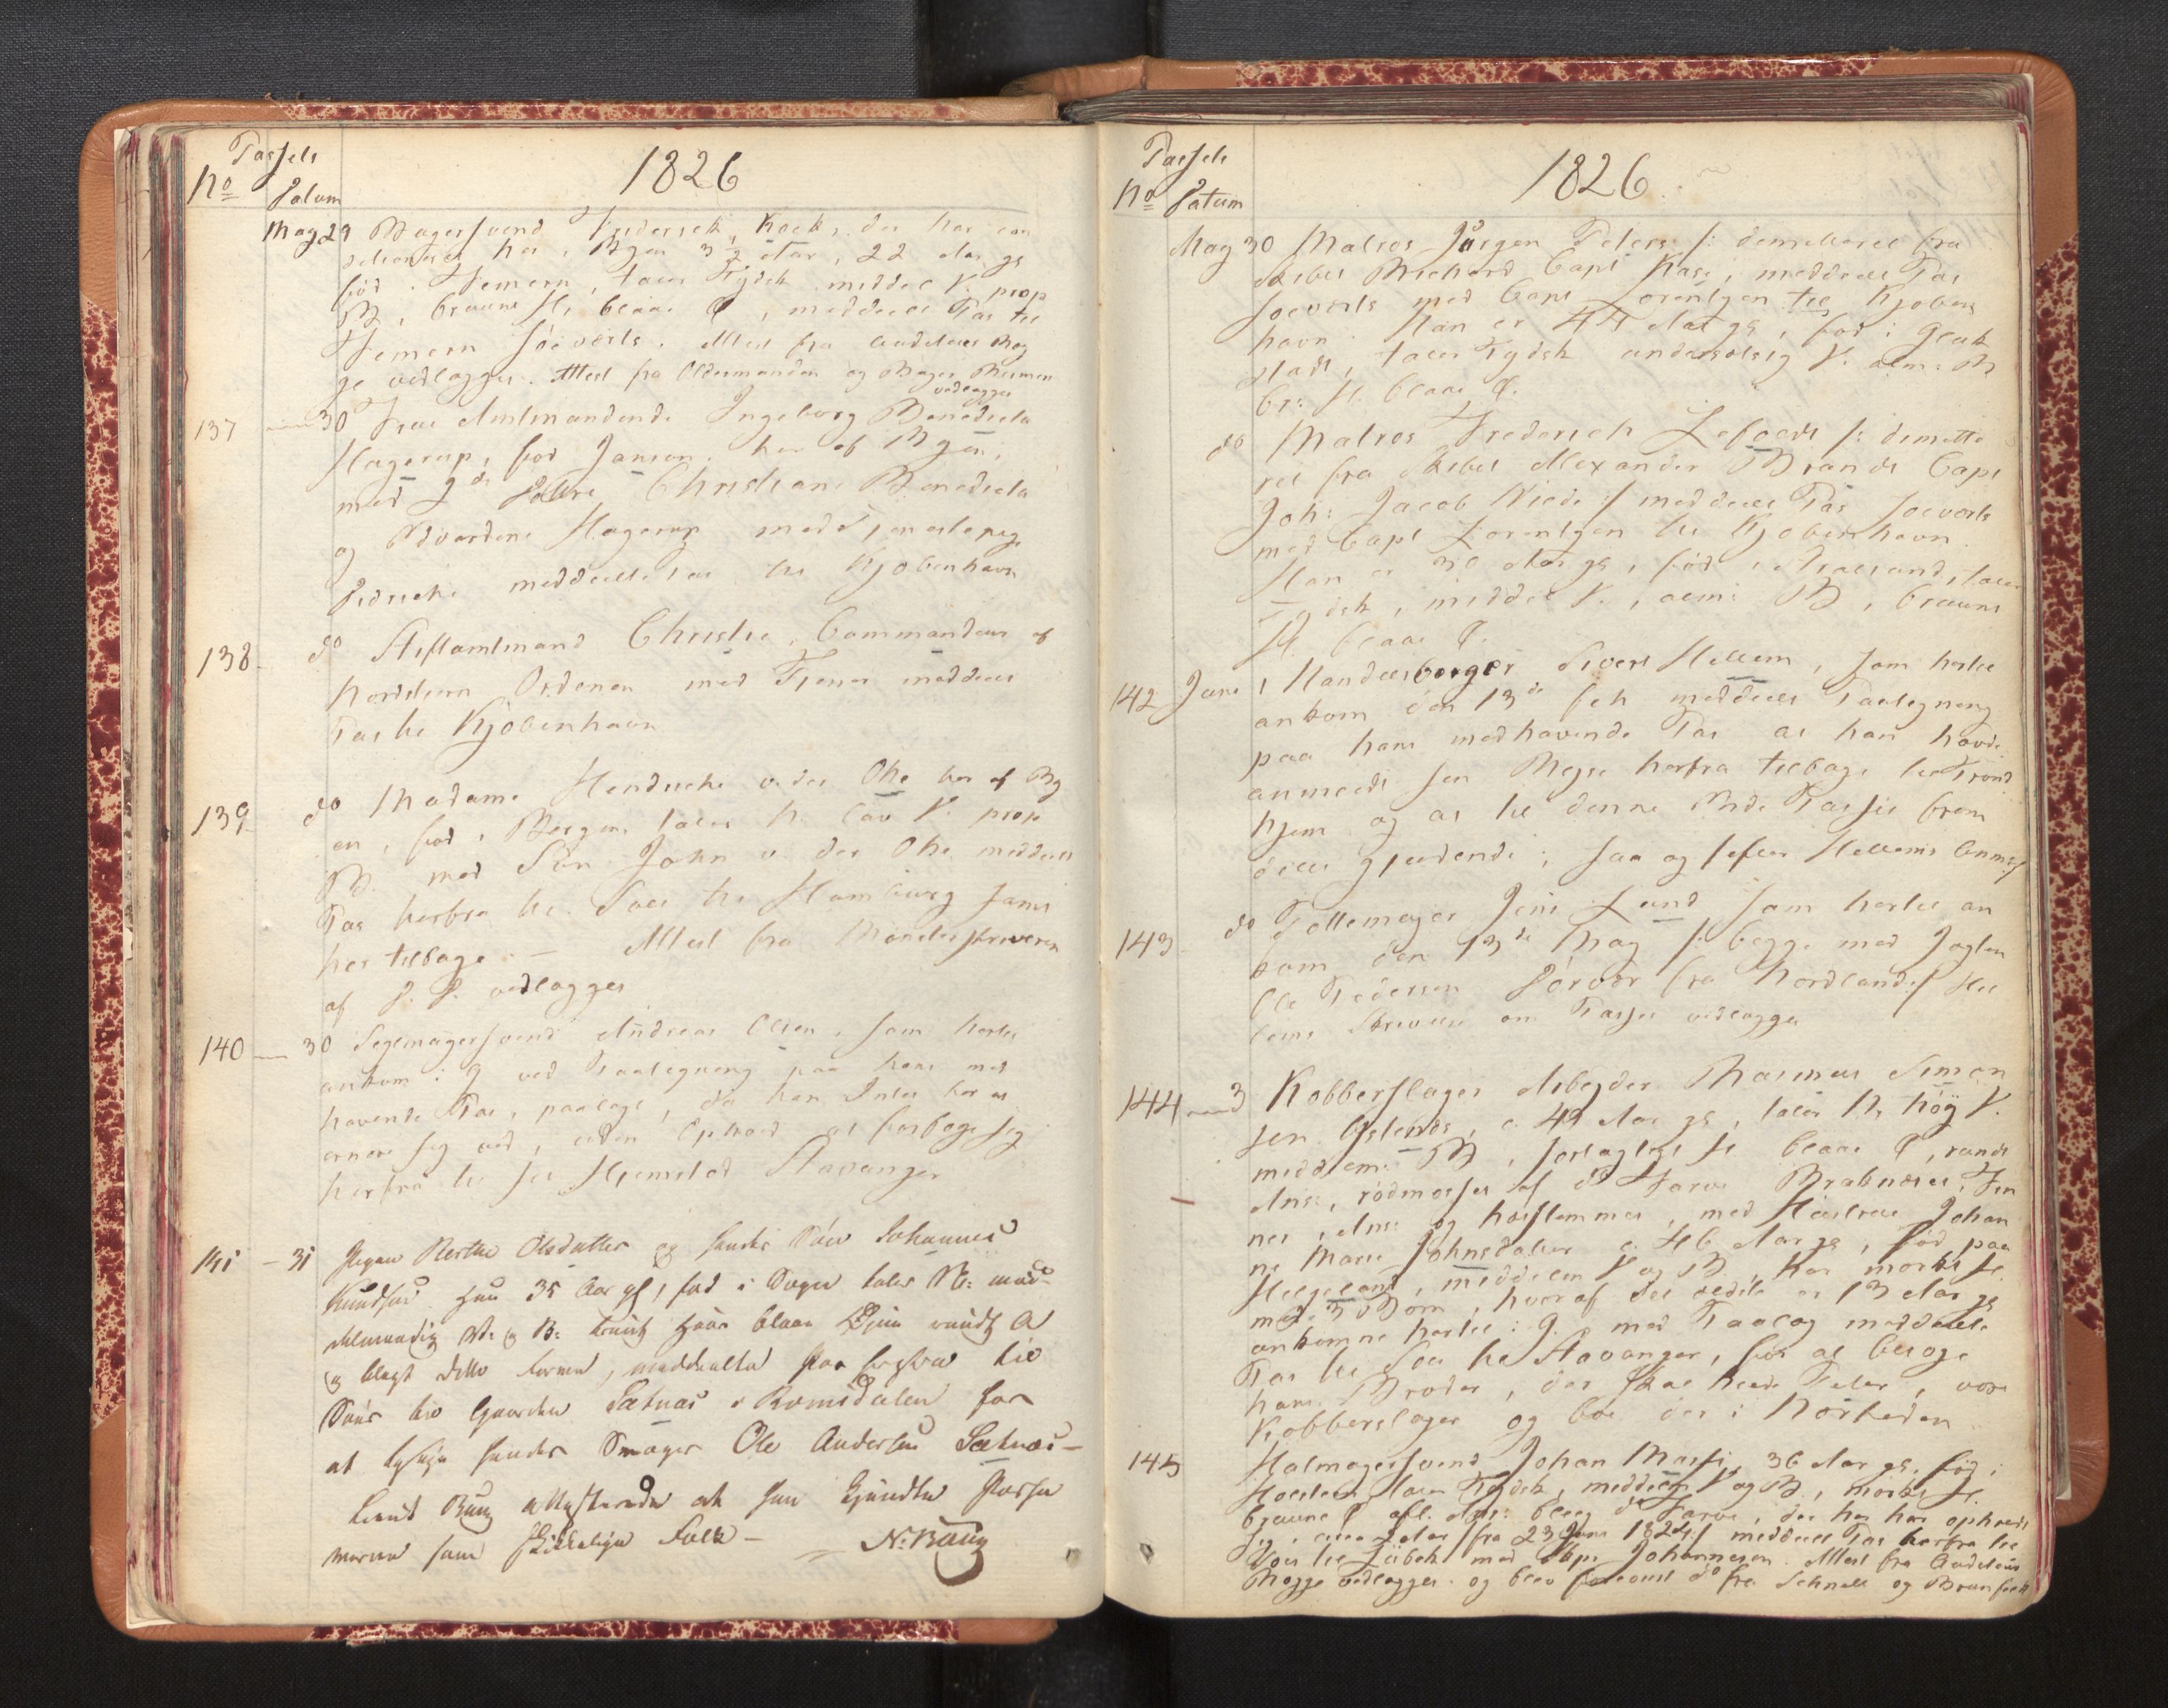 Passets
No Datum
1826
May 29 Bagersvend Frederich Kock, der har con
ditioneret her i Byen 3 1/2 Aar, 22 Aar gl
fød i Femern, taler Tydsk middel V. prop
B, brune H. blaae Ø, meddeelt Pas til
Femern söeverts. Attest fra Auditeur Bøg
ge vedlagges. Attest fra Oldermanden og Bager
vedlagges
137 30 Frue Amtmandinde Ingeborg Benedicta
Hagerup, fød Janson, her af Byen,
med 2de Døttre Christiane Benedicta
og Edvardine Hagerup med Tjenestepige
meddeelt Pas til Kjøbenhavn
138 do Stiftamtmand Christie, Commandeur af
Nordstiern Ordenen med Tjener meddeelt
Pas til Kjøbenhavn
139 do Madame Hendriche v. der Ohe her af By
en, fød i Bergen, taler N. lav V. prop
B. med Sön John v. der Ohe meddeelt
Pas herfra til Söes til Hamburg samt
her tilbage. — Attest fra Mönsterskriveren
af D. D. vedlagges
140 30 Segemagersvend Andreas Olsen, som hertil
ankom i G ved Paategning paa hans med
havende Pas, paalagt, da han Intet har at
ernere sig ved, uden Ophold at forføge sig
herfra til sit Hjemsted Stavanger
141 31 Pigen Berthe Olsdatter og hendes Sön Johannes
Knudsen. Hun 35 Aar gl, fød i Sogn taler N: maa-
delmaadig V: og B: bruunt Haar blaae Øjne rundt A
og blegt ditto Farve, meddeelte Pas herfra til
Söes til Gaarden Sætnæs i Romsdalen for
at besøge hendes Svoger Ole Andersen Sætnæs —
Knud Bung attesterede at han kjendte Passa
merne som skikkelige Folk — N: Bung
Passets
No Datum
1826
May 30 Matros Jürgen Peters /: demitteret fra
Skibet Richard Capt Kase, meddeelt Pas
soeverts med Capt Lorentzen til Kjøben
havn. Han er 44 Aar gl, fød i Gluk
stadt, taler Tydsk undersetsig V. alm: B
br: H. blaae Ø.
do Matros Frederich Lefoedt /: demitte
ret fra Skibet Alexander Brandt Capt
Joh: Jacob Niede :/ meddeelt Pas soeverts
med Capt Lorentzen til Kjøbenhavn.
Han er Aar gl, fød i Stralsund, taler
Tydsk, middel V., alm: B, bruune
H. blaae Ø.
142 Juni 1 Handelsborger Sivert Hellem, som hertil
ankom den 13de feb meddeelt Paategning
paa hans medhavende Pas at han havde
anmeldt sin Rejse herfra tilbage til Trond
hjem og at til denne Ende Passet frem
deles gjældende; saa og /efter Hellems Anm:/
143 do Pottemager Jens Lund som hertil an
kom den 13de May /: begge med Jagten
Ole Pedersen Dörvær fra Nordland :/ Hel
lems Skrivelse om Passet vedlagges
144 3 Kobberslager Arbejder Rasmus Simon
sen Öslends, c 49 Aar gl, taler N. høÿ V.
middlem: B, sortagtigt H. blaae Ø, rundt
Ans:, rödmosset af do Farve Brabender, Fin
ner i Ans: og halslemmer, med Hustrue Johan
ne Marie Johnsdatter c: 46 Aar gl, fød paa
Helgeland, middelm V og B, har morkt H.
med 3 Børn, hvoraf det ældste er 13 Aar gl
ankomne hertil i G. med Paalæg meddeelt
Pas til Söes til Stavanger, for at besøge
hans Broder, der skal hede Peder, være
Kobberslager og boe der i Nærheden
145 Hatmagersvend Johan Massi, 36 Aar gl. fød i
Holsteen, taler Tydsk, middelm V og B, morkt H.
bruune Ø afl. Ans: bleg do Farve, der har her opholdt
sig circa 2 Aar /fra 23 Juni 1824:/ meddeelt Pas herfra til
Söes til Lübek med Skpr Johannesen. Attest fra Auditeur
Bøgge vedlagges. og blev forevist do fra Schnell og